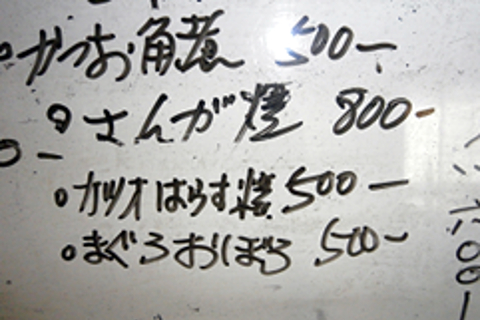 かつお角煮 500ー
さんが焼 800-
カツオはらす焼 500ー
まぐろおぼろ 500-